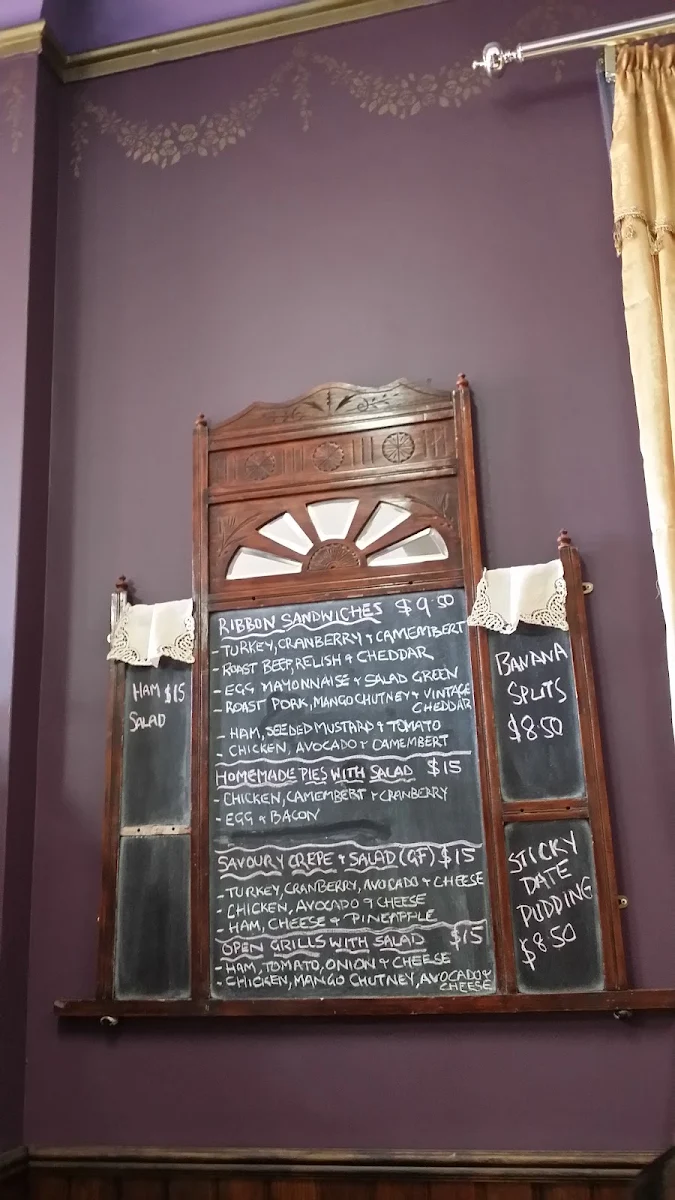 HAM $15
SALAD
RIBBON SANDWICHES $9.50
- TURKEY, CRANBERRY & CAMEMBERT
- ROAST BEEF, RELISH & CHEDDAR
- EGG MAYONNAISE & SALAD GREEN
- ROAST PORK, MANGO CHUTNEY & VINTAGE
CHEDDAR
- HAM, SEEDED MUSTARD & TOMATO
- CHICKEN, AVOCADO & CAMEMBERT
HOMEMADE PIES WITH SALAD $15
- CHICKEN, CAMEMBERT & CRANBERRY
- EGG & BACON
SAVOURY CREPE & SALAD (GF) $15
- TURKEY, CRANBERRY, AVOCADO & CHEESE
- CHICKEN, AVOCADO & CHEESE
- HAM, CHEESE & PINEAPPLE
OPEN GRILLS WITH SALAD $15
- HAM, TOMATO, ONION & CHEESE
- CHICKEN, MANGO CHUTNEY, AVOCADO &
CHEESE
BANANA
SPLITS
$8.50
STICKY
DATE
PUDDING
$8.50